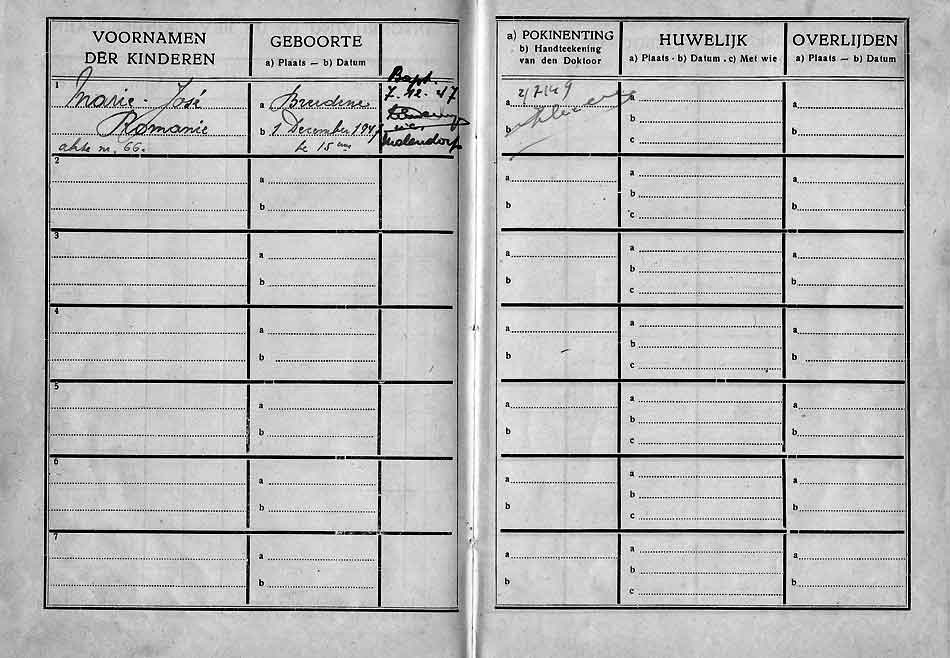 VOORNAMEN
DER KINDEREN
GEBOORTE
a) Plaats — b) Datum
a) POKINENTING
b) Handteekening
van den Doktoor
HUWELIJK
a) Plaats - b) Datum - c) Met wie
OVERLIJDEN
a) Plaats — b) Datum
1
Marie-José
Romanie
akte nr. 66.
a Breedene
b 1 December 1947
te 15 uur
Bapt.
7.12.47
a
b
a
b
c
a
b
2
a
b
a
b
a
b
c
a
b
3
a
b
a
b
a
b
c
a
b
4
a
b
a
b
a
b
c
a
b
5
a
b
a
b
a
b
c
a
b
6
a
b
a
b
a
b
c
a
b
7
a
b
a
b
a
b
c
a
b